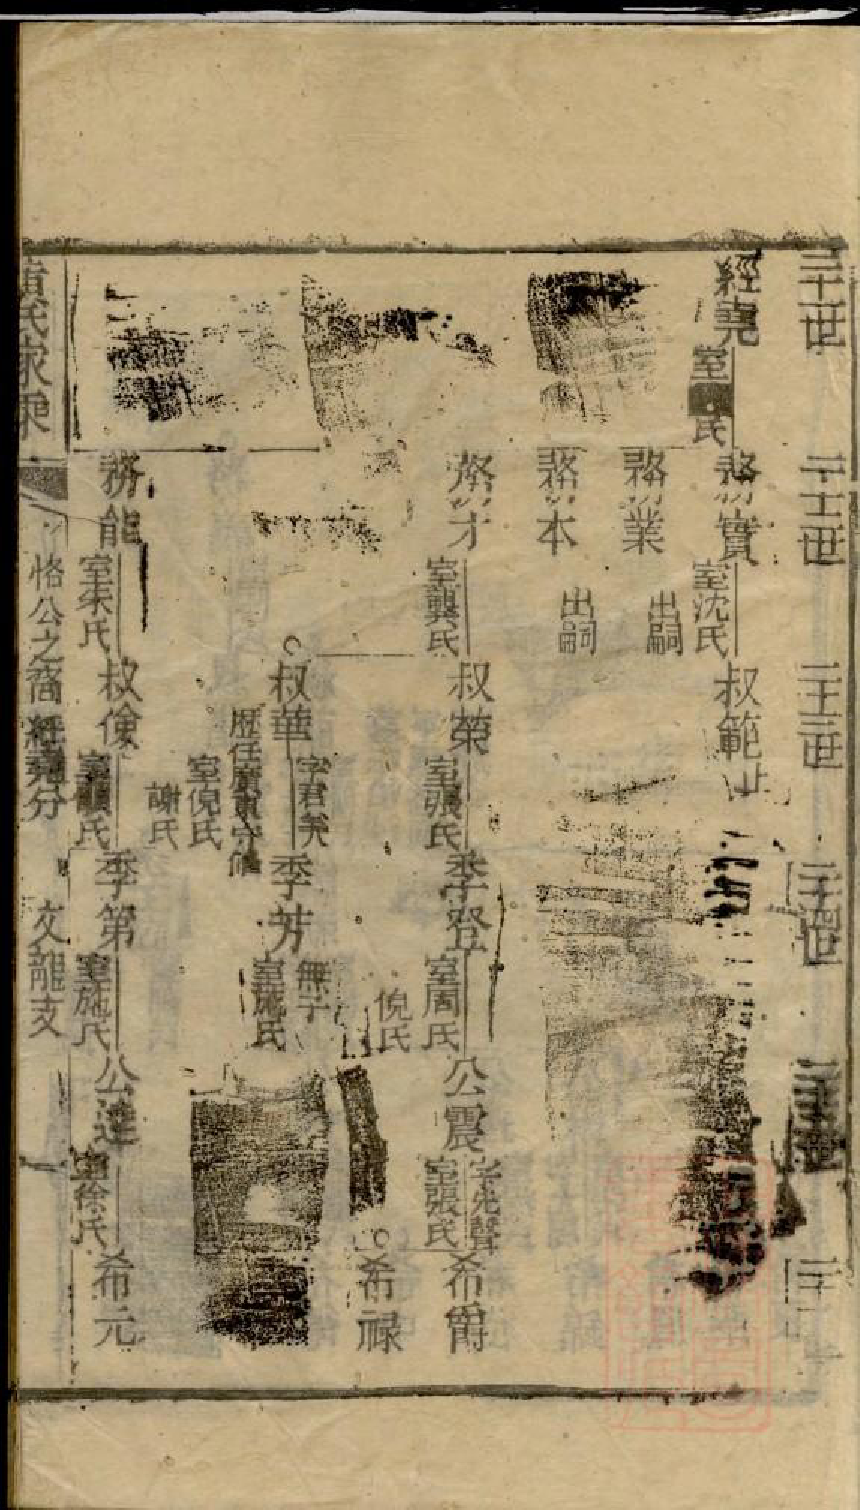 二十一世
二十二世
二十三世
二十四世
二十五世
二十
經堯
室
氏
務實
室沈氏
叔範
止
務業
出嗣
務本
出嗣
務才
室龔氏
叔榮
室張氏
季登
室周氏
倪氏
公震
字先聲
室張氏
希爵
希祿
叔華
字君美
歷任廣東守備
室倪氏
謝氏
季芳
無子
室施氏
務能
室朱氏
叔儉
室顧氏
季第
室施氏
公達
室徐氏
希元
黃氏家乘
恪公之裔
經堯分
文龍支